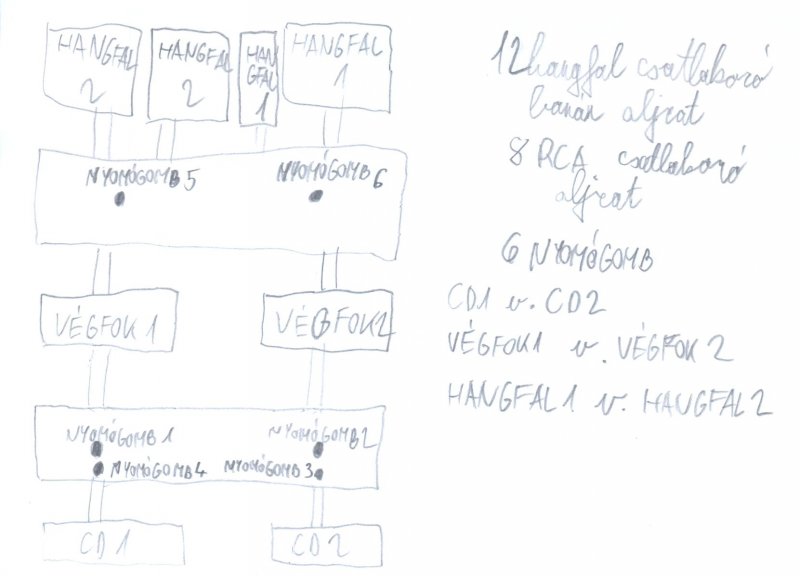 HANGFAL 2
HANGFAL 2
HANGFAL 1
HANGFAL 1
NYOMÓGOMB 5
NYOMÓGOMB 6
VÉGFOK 1
VÉGFOK 2
NYOMÓGOMB 1
NYOMÓGOMB 2
NYOMÓGOMB 4
NYOMÓGOMB 3
CD 1
CD 2
12 hangfal csatlakozó
banán aljzat
8 RCA csatlakozó
aljzat
6 NYOMÓGOMB
CD1 v. CD2
VÉGFOK1 v. VÉGFOK 2
HANGFAL 1 v. HANGFAL 2